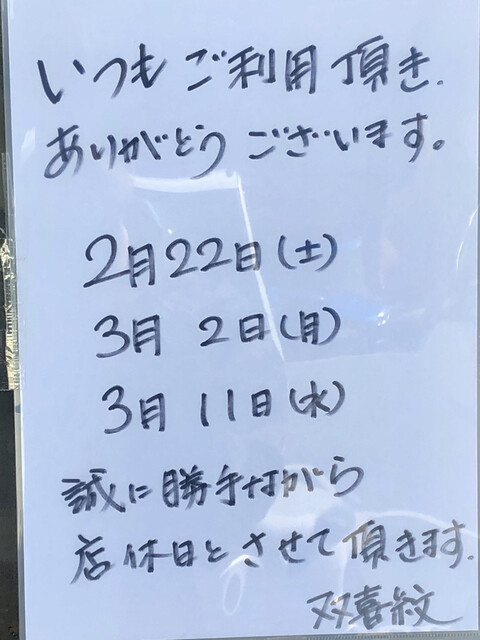 いつもご利用頂き、
ありがとうございます。
2月22日(土)
3月 2日(月)
3月 11日(水)
誠に勝手ながら
店休日とさせて頂きます。
双喜紋